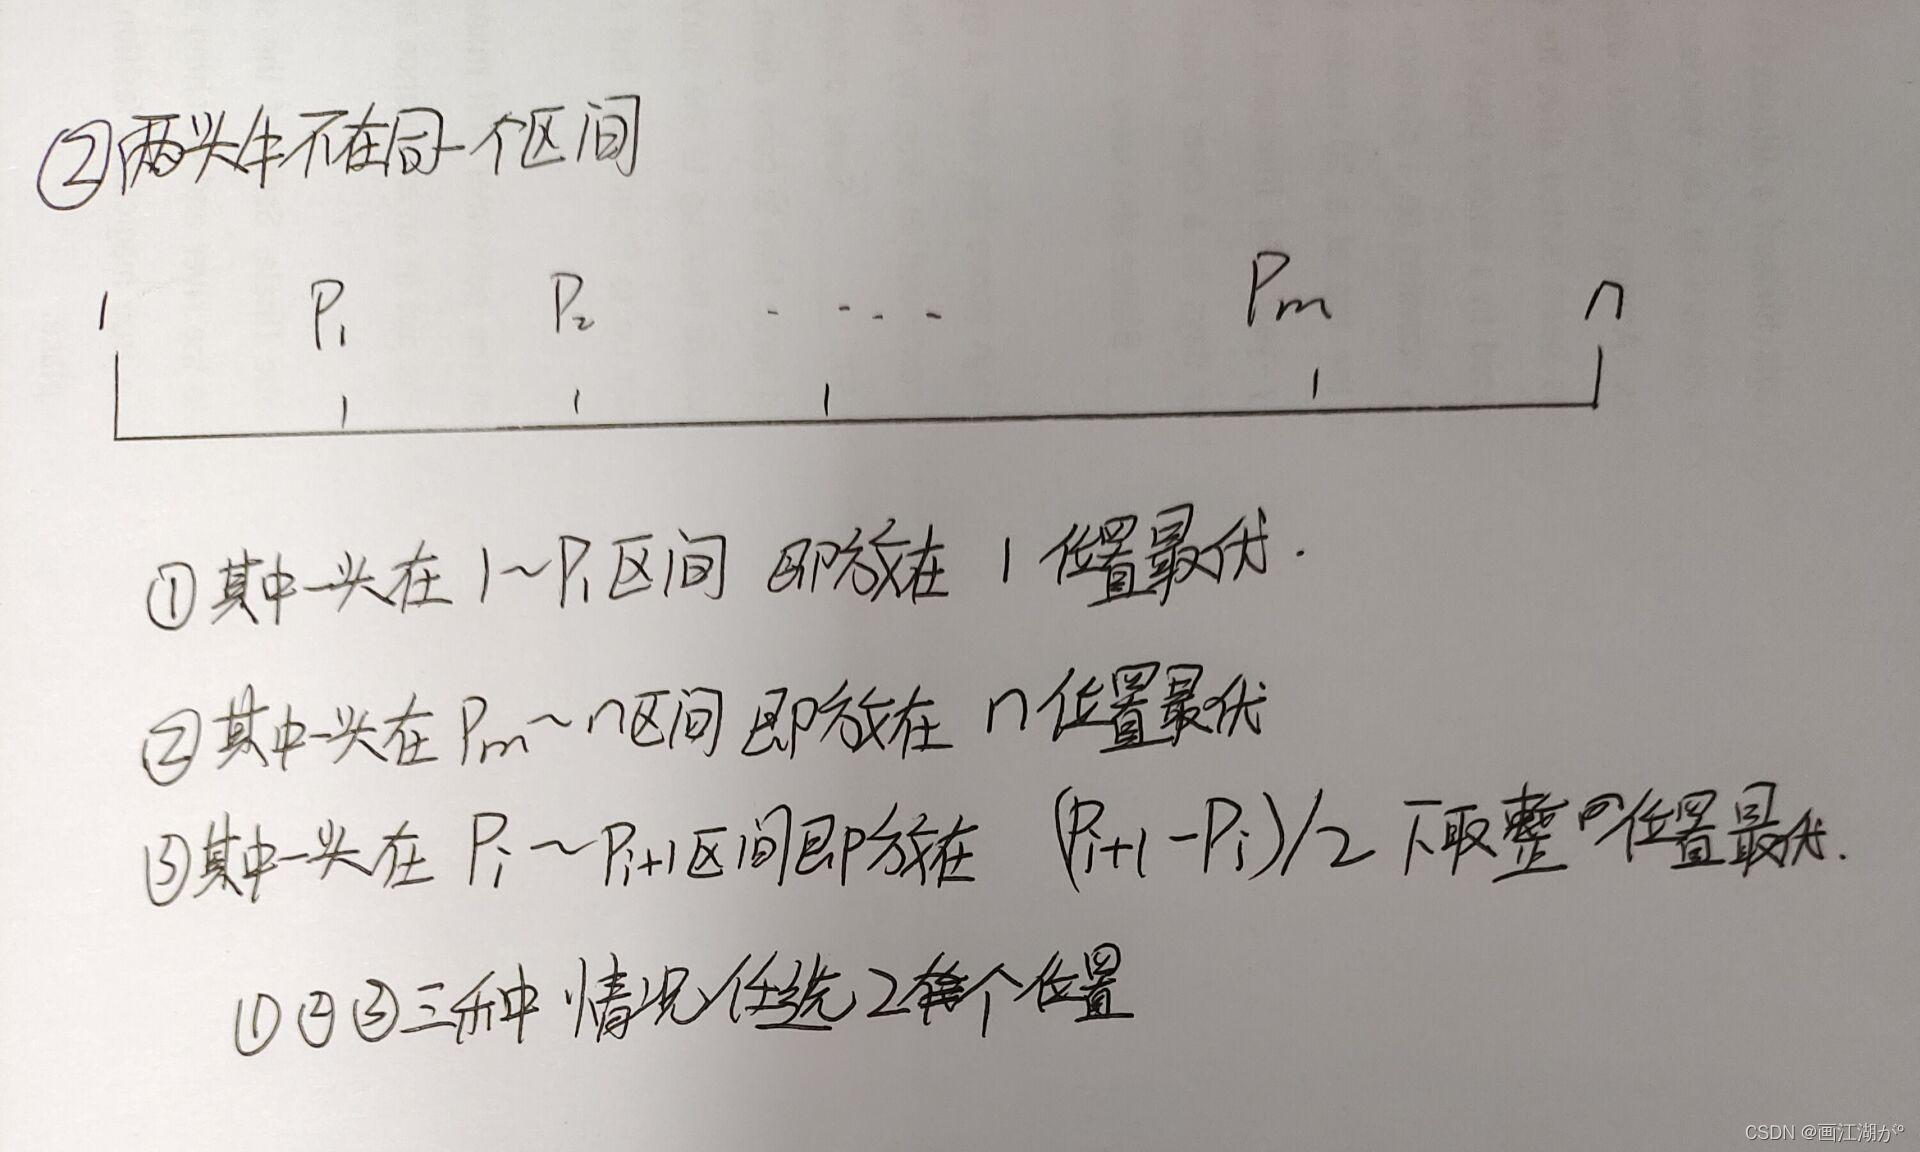 ②两头牛不在同一个区间
1 P₁ P₂ ..... Pm n
①其中一头在 1~P₁区间 即放在 1 位置最优.
②其中一头在 Pm~n区间 即放在 n位置最优
③其中一头在 Pi~Pi+1区间即放在 (Pi+1-Pi)/2 下取整的位置最优.
①②③三种情况任选2个位置
CSDN @画江湖がº